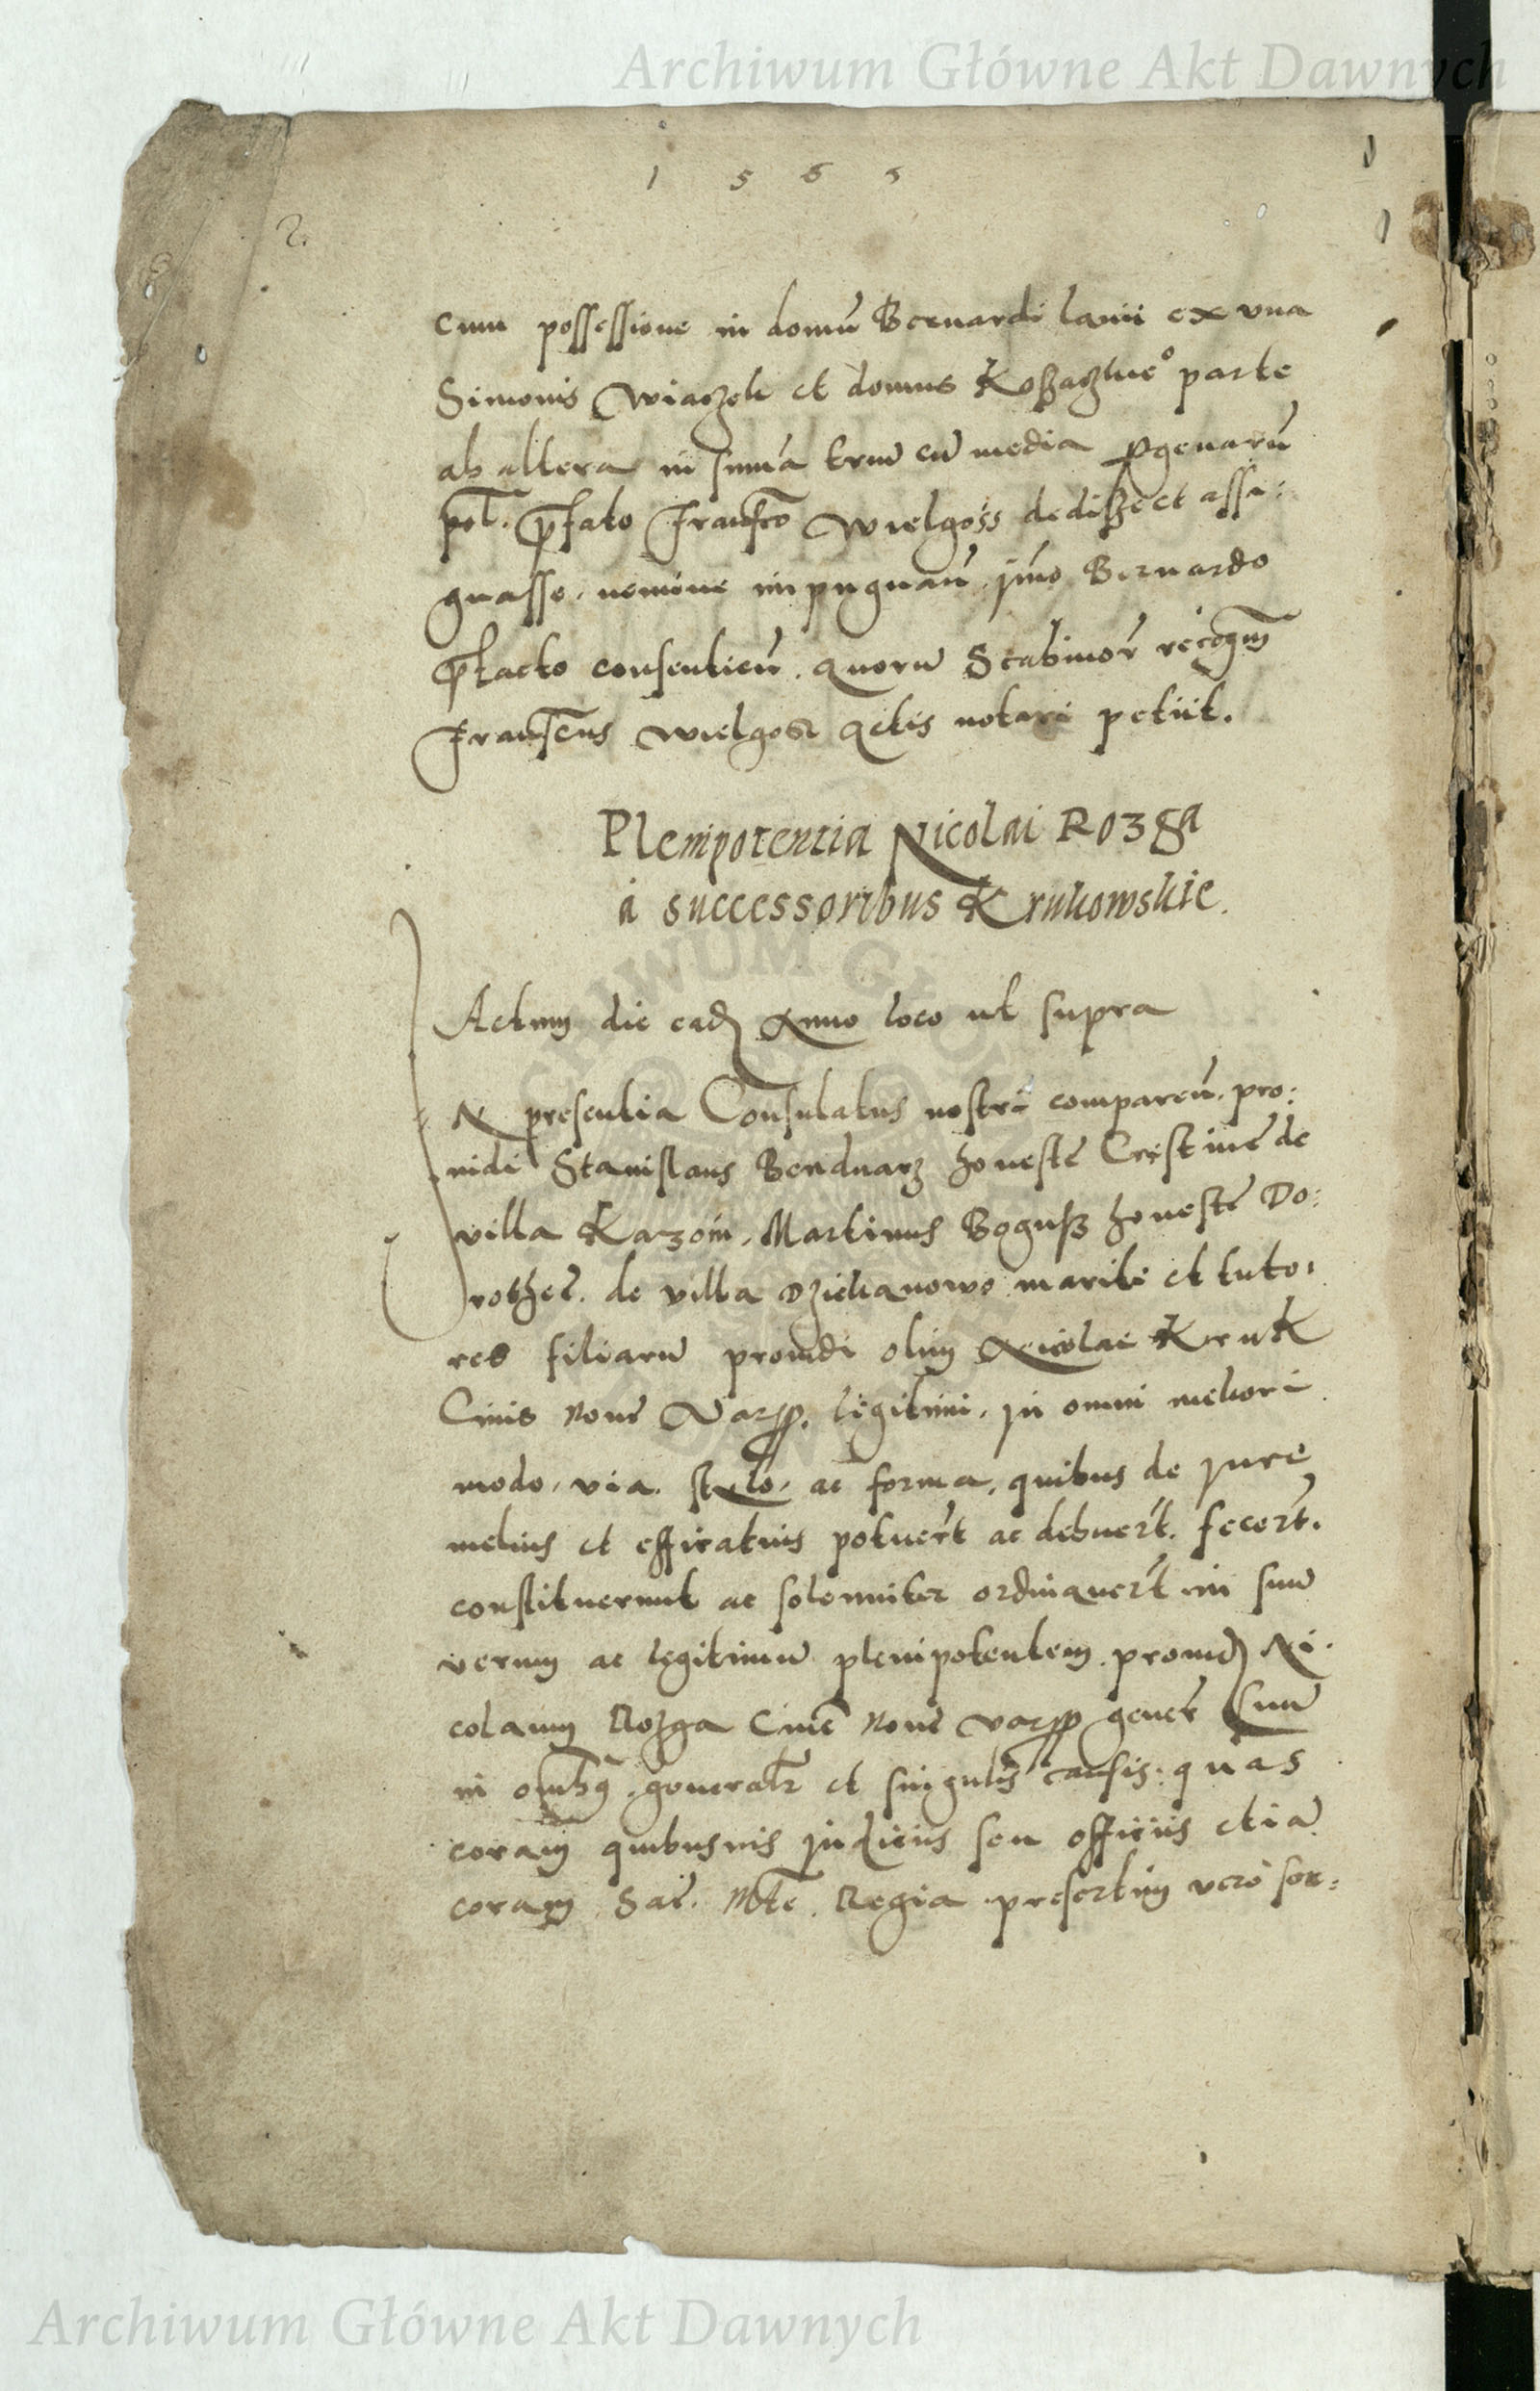 Archiwum Główne Akt Dawnych
1 5 6 5
2.
cum possessione in domū Bernardi lanii ex vna
Simonis Wiaczek et domus parte
ab altera in sum̄a trium cū media sxgenarū
pol. p̄fato Fran̄co Wielgoss dedisse et assi:
gnasse, nemine impugnan̄. ym̄o Bernardo
p̄facto consentien̄. quorū Scabinor̄ recogm̄
Francus Wielgosz Actis notari petiit.
Plenipotentia Nicolai Rozga
à successoribus Krukowskie.
Actum die ead Anno loco ut supra
IN presentia Consulatus nostri comparen̄. pro:
uidi Stanislaus Bendnarz honestę Cristinę de
villa Kazoin, Martinus Bogusz honestę Do:
rotheę. de villa Dziekanowo mariti et tuto:
res filiarū prouidi olim Nicolai Kruk
Ciuis nouę Varsz. legitimi, in omni meliori
modo, via. stylo, ac forma, quibus de jure
melius et efficatius potuer̄t ac debuer̄t. fecer̄t.
constituerunt ac solemniter ordinauer̄t in suū
verum ac legitimū plenipotentem prouid Ni:
colaum Rozga Ciuē nouę Varsz gener̄
in om̄bq. generalr̄ et singulis causis. quas
coram quibusuis judiciis seu officiis etiā
coram Sac. Mte. Regia presertim vero
Archiwum Główne Akt Dawnych